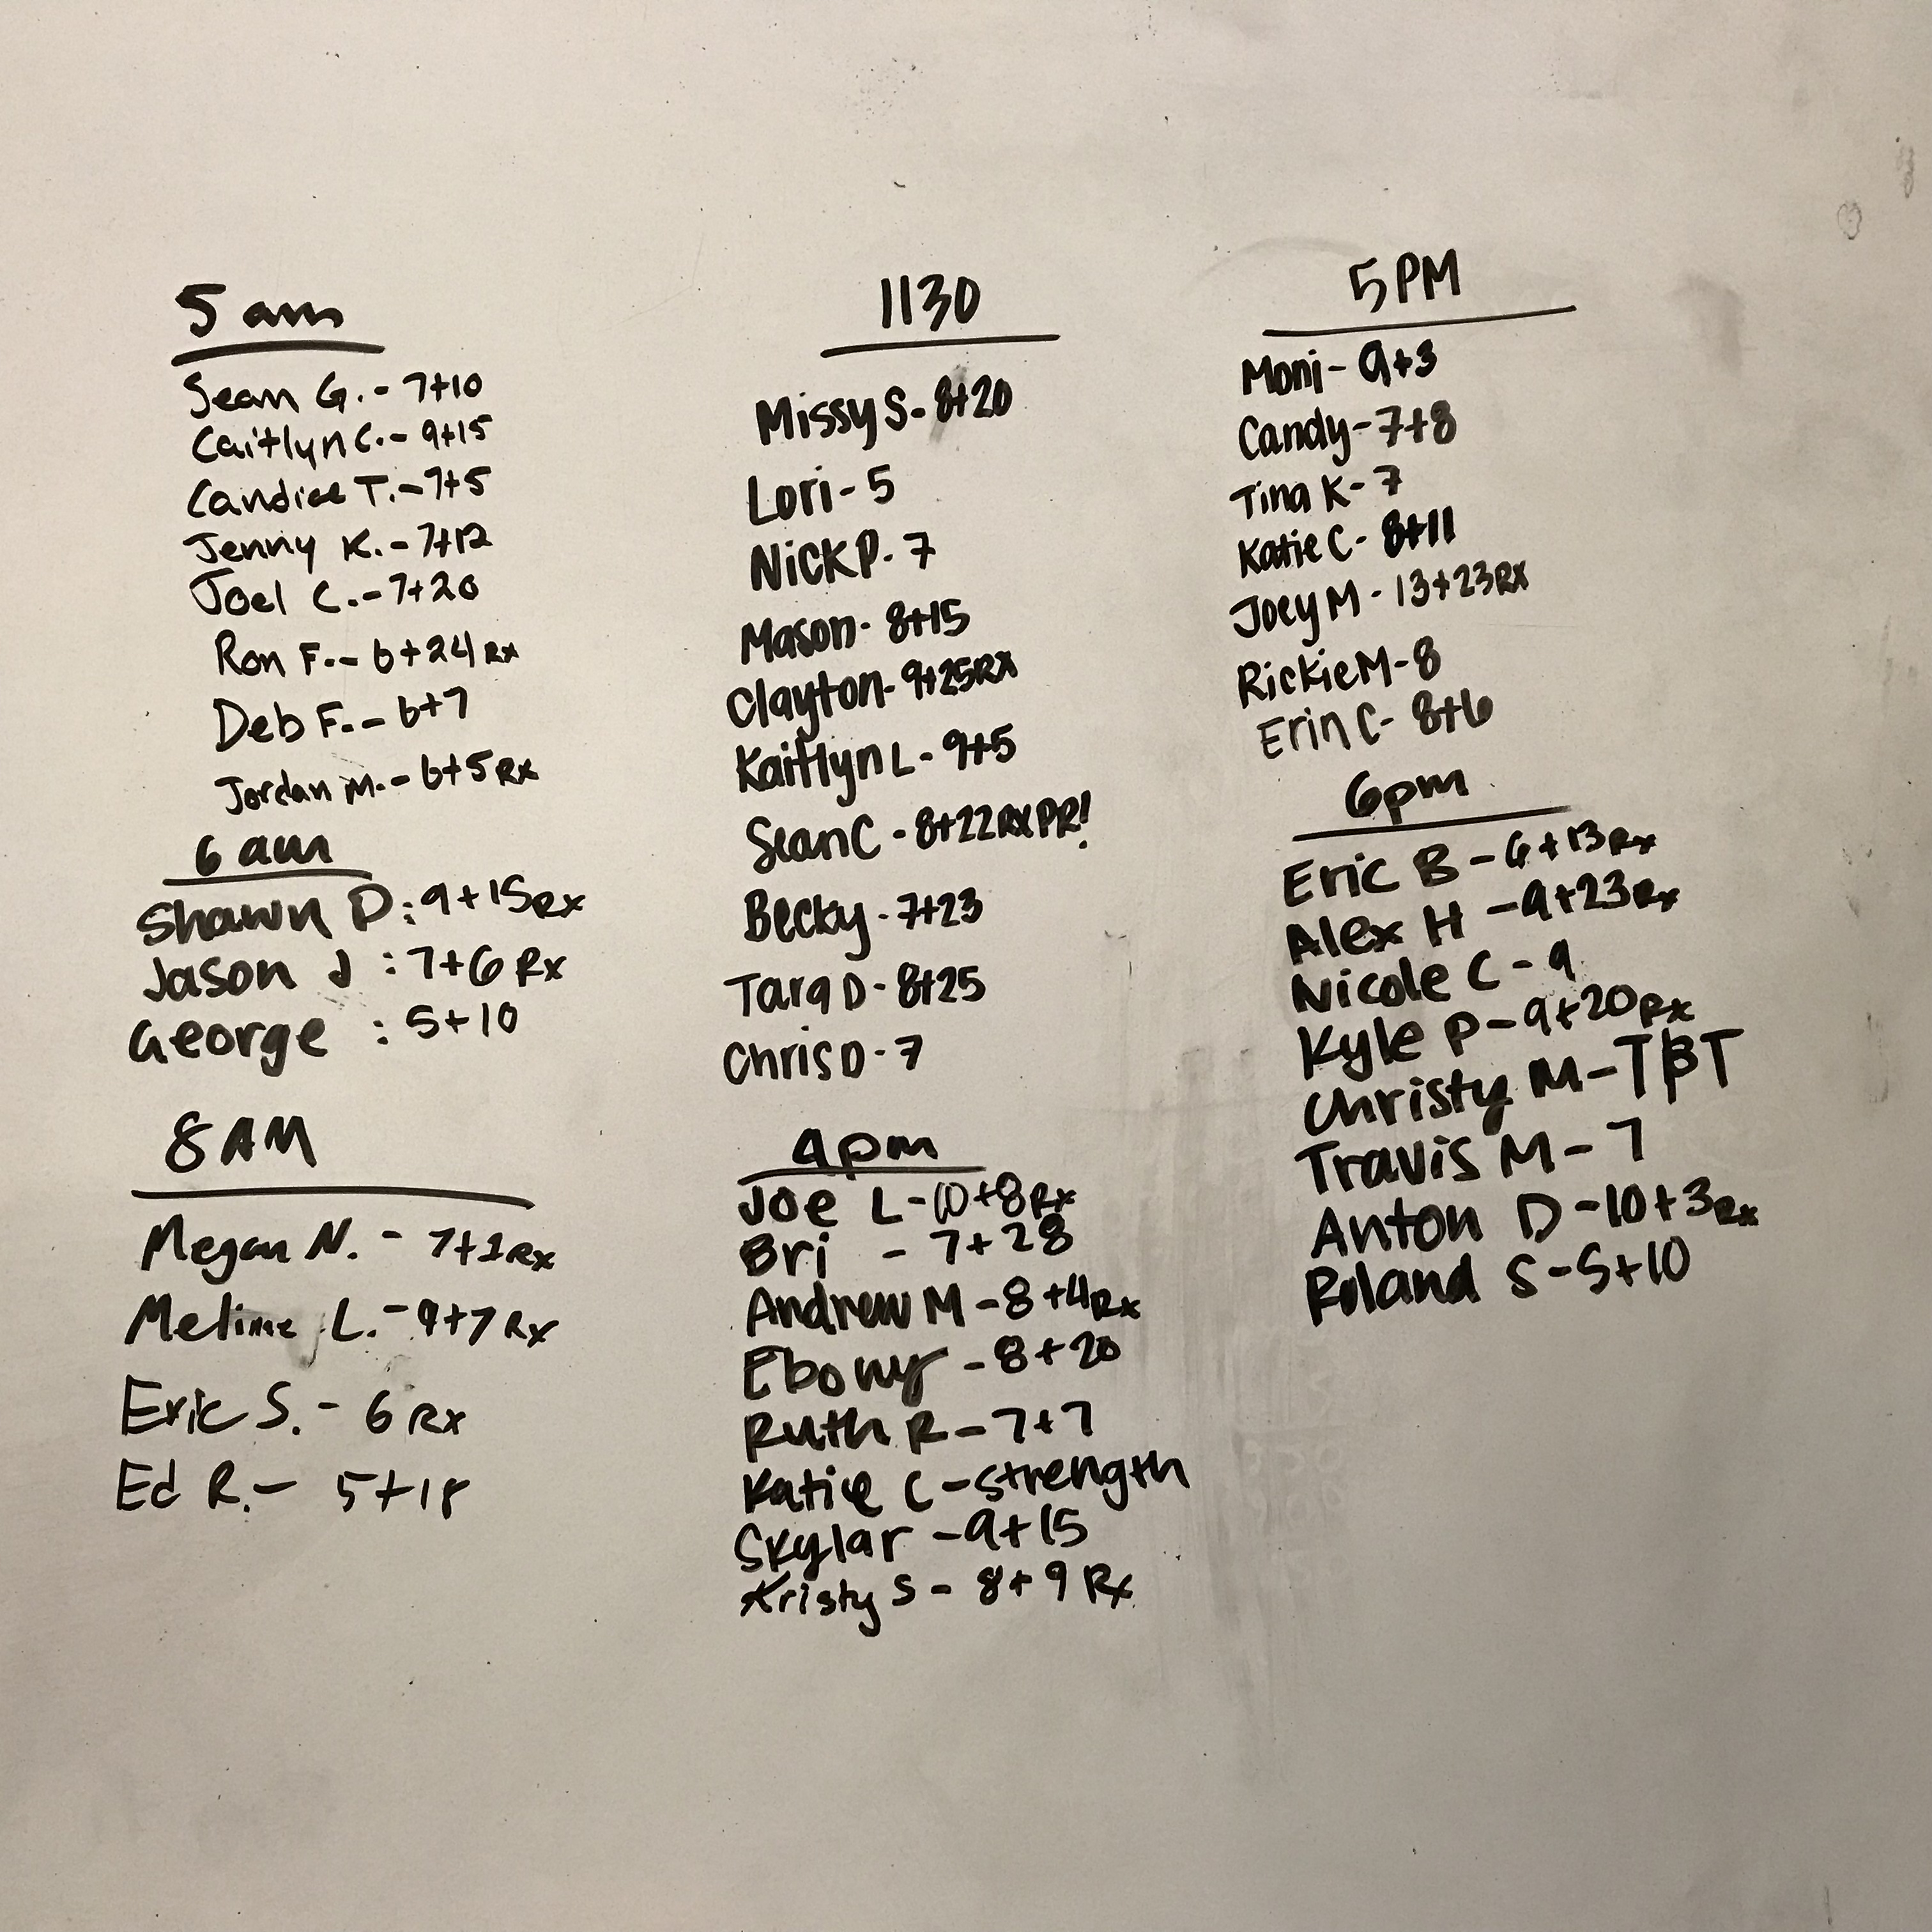 5 am
Sean G. - 7+10
Caitlyn C. - 9+15
Candice T. - 7+5
Jenny K. - 7+12
Joel C. - 7+20
Ron F. - 6+24 Rx
Deb F. - 6+7
Jordan M. - 6+5 Rx
6 am
Shawn D : 9+15 Rx
Jason J : 7+6 Rx
George : 5+10
8 AM
Megan N. - 7+1 Rx
L. - 9+7 Rx
Eric S. - 6 Rx
Ed R. - 5+18
1130
Missy S - 8+20
Lori - 5
Nick P. 7
Mason - 8+15
Clayton - 9+25 RX
Kaitlyn L - 9+5
Sean C - 8+22 RX PR!
Becky - 7+23
Tara D - 8+25
Chris D - 7
4pm
Joe L - 10+8 Rx
Bri - 7+28
Andrew M - 8+4 Rx
Ebony - 8+20
Ruth R - 7+7
Katie C - strength
Skylar - 9+15
Kristy S - 8+9 Rx
5 PM
Moni - 9+3
Candy - 7+8
Tina K - 7
Katie C - 8+11
Joey M - 13+23 RX
Rickie M - 8
Erin C - 8+6
6pm
Eric B - 6+13 Rx
Alex H - 9+23 Rx
Nicole C - 9
Kyle P - 9+20 Rx
Christy M - TBT
Travis M - 7
Anton D - 10+3 Rx
Roland S - 5+10